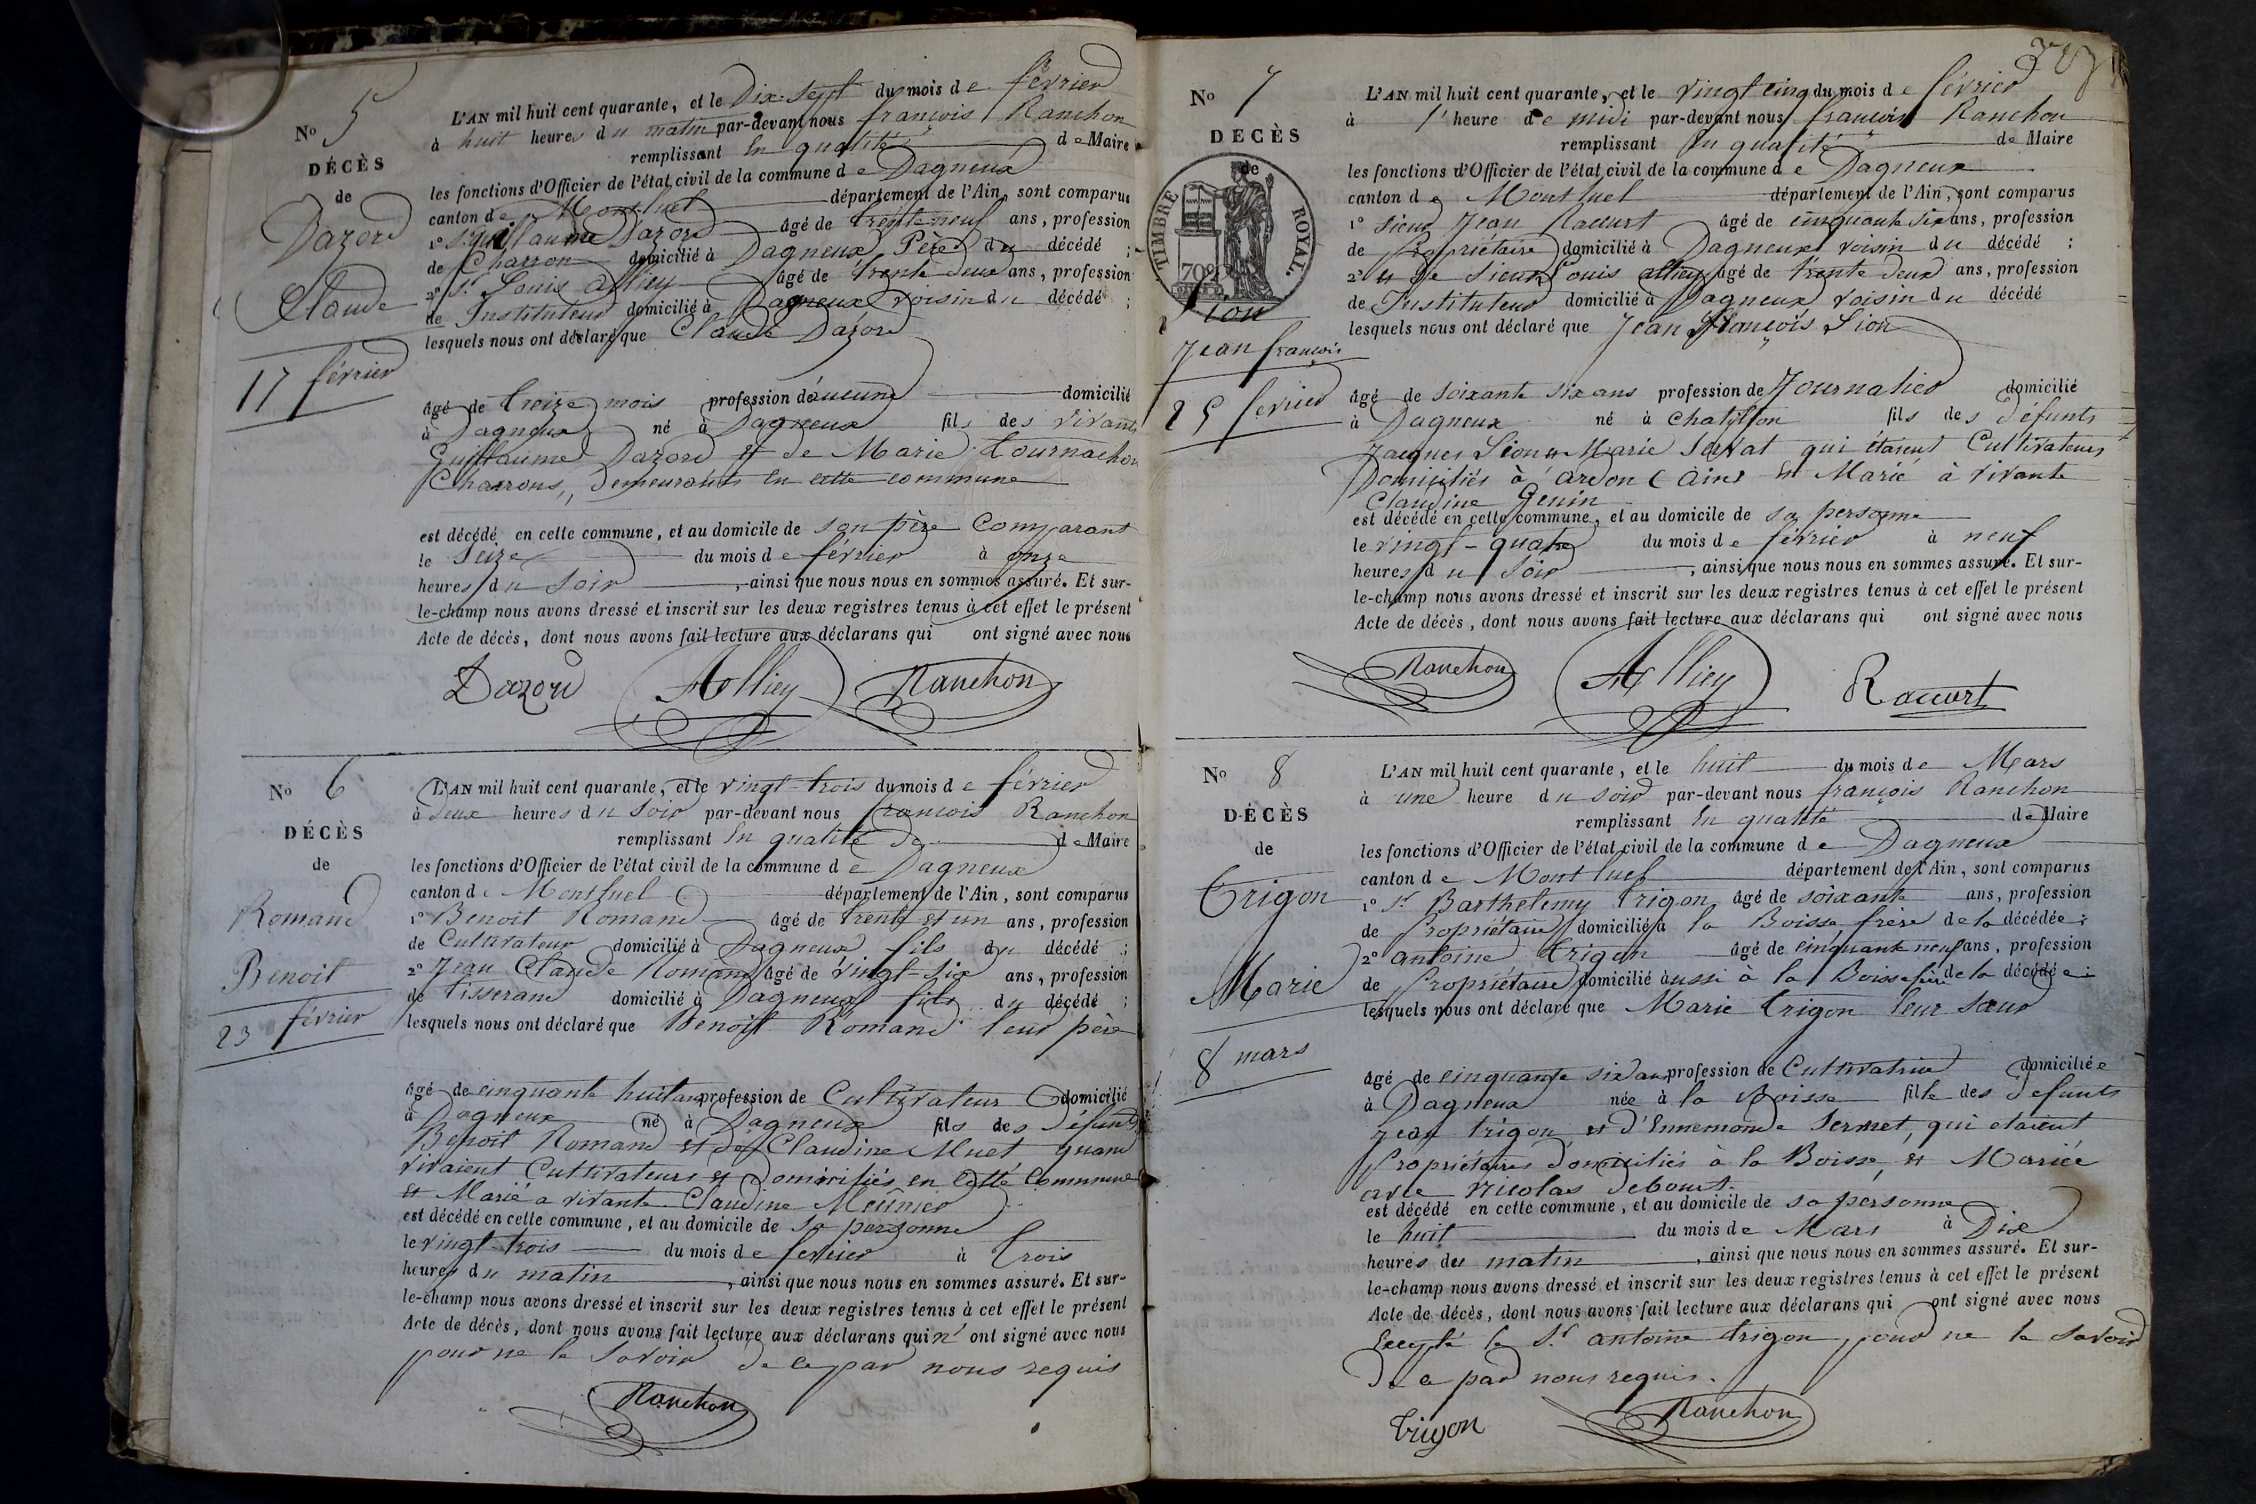 No 5
DÉCÈS
de
Dazord
Claude
17 février
L'AN mil huit cent quarante, et le Dix-Sept du mois de février
à huit heures du matin par-devant nous françois Ranchon
remplissant En qualité de Maire
les fonctions d'Officier de l'état civil de la commune de Dagneux
canton de Montluel département de l'Ain, sont comparus
1º Sr Guillaume Dazord âgé de trente neuf ans, profession
de Charron domicilié à Dagneux Père du décédé ;
2º Sr Louis Alliey âgé de trente deux ans, profession
de Instituteur domicilié à Dagneux voisin du décédé ;
lesquels nous ont déclaré que Claude Dazord
âgé de treize mois profession d'aucune domicilié
à Dagneux né à Dagneux fils des vivants
Guillaume Dazord et de Marie Tournachon
Charrons, Demeurants en cette commune
est décédé en cette commune, et au domicile de son père Comparant
le Seize du mois de février à onze
heures du Soir, ainsi que nous nous en sommes assuré. Et sur-
le-champ nous avons dressé et inscrit sur les deux registres tenus à cet effet le présent
Acte de décès, dont nous avons fait lecture aux déclarans qui ont signé avec nous
Dazord Alliey Ranchon
No 6
DÉCÈS
de
Romand
Benoit
23 février
L'AN mil huit cent quarante, et le vingt-trois du mois de février
à deux heures du Soir par-devant nous françois Ranchon
remplissant En qualité de de Maire
les fonctions d'Officier de l'état civil de la commune de Dagneux
canton de Montluel département de l'Ain, sont comparus
1º Benoit Romand âgé de trente et un ans, profession
de Cultivateur domicilié à Dagneux fils du décédé ;
2º Jean Claude Romand âgé de vingt-six ans, profession
de tisserand domicilié à Dagneux fils du décédé ;
lesquels nous ont déclaré que Benoit Romand leur père
âgé de cinquante huit ans profession de Cultivateur domicilié
à Dagneux né à Dagneux fils des défunts
Benoit Romand et de Claudine Muet quand
vivaient Cultivateurs et domiciliés en cette Commune
et Marié a vivante Claudine Meûnier
est décédé en cette commune, et au domicile de sa personne
le vingt-trois du mois de février à trois
heures du matin, ainsi que nous nous en sommes assuré. Et sur-
le-champ nous avons dressé et inscrit sur les deux registres tenus à cet effet le présent
Acte de décès, dont nous avons fait lecture aux déclarans qui n' ont signé avec nous
pour ne le Savoir de ce par nous requis
Ranchon
No 7
DECÈS
de
TIMBRE ROYAL.
70c
Lion
Jean françois
25 février
L'AN mil huit cent quarante, et le vingt cinq du mois de février
à 1' heure de midi par-devant nous françois Ranchon
remplissant En qualité de Maire
les fonctions d'Officier de l'état civil de la commune de Dagneux
canton de Montluel département de l'Ain, sont comparus
1º Sieur Jean Racurt âgé de cinquante six ans, profession
de Propriétaire domicilié à Dagneux voisin du décédé ;
2º et Se Sieur Louis Alliey âgé de trente deux ans, profession
de Instituteur domicilié à Dagneux voisin du décédé
lesquels nous ont déclaré que Jean françois Lion
âgé de soixante six ans profession de Journalier domicilié
à Dagneux né à Chatillon fils des défunts
Jacques Lion et Marie Servat qui étaient Cultivateurs
Domiciliés à ardon (Ain) Et Marié à vivante
Claudine Genin
est décédé en cette commune, et au domicile de sa personne
le vingt-quatre du mois de février à neuf
heures du Soir, ainsi que nous nous en sommes assuré. Et sur-
le-champ nous avons dressé et inscrit sur les deux registres tenus à cet effet le présent
Acte de décès, dont nous avons fait lecture aux déclarans qui ont signé avec nous
Ranchon Alliey Racurt
No 8
DÉCÈS
de
Trigon
Marie
8 mars
L'AN mil huit cent quarante, et le huit du mois de Mars
à une heure du soir par-devant nous françois Ranchon
remplissant En qualité de Maire
les fonctions d'Officier de l'état civil de la commune de Dagneux
canton de Montluel département de l'Ain, sont comparus
1º Sr Barthelemy Trigon âgé de soixante ans, profession
de Propriétaire domicilié à la Boisse frère de la décédée ;
2º antoine Trigon âgé de cinquante neuf ans, profession
de Propriétaire domicilié aussi à la Boisse frère de la décédée
lesquels nous ont déclaré que Marie Trigon leur sœur
âgé de cinquante six ans profession de Cultivatrice domiciliée
à Dagneux née à la Boisse fille des défunts
Jean Trigon et d'Ennemonde Sermet, qui etaient
Propriétaires domiciliés à la Boisse, et Marriée
avec Nicolas Debourt
est décédé en cette commune, et au domicile de sa personne
le huit du mois de Mars à Dix
heures du matin, ainsi que nous nous en sommes assuré. Et sur-
le-champ nous avons dressé et inscrit sur les deux registres tenus à cet effet le présent
Acte de décès, dont nous avons fait lecture aux déclarans qui ont signé avec nous
Excepté le Sr antoine Trigon, pour ne le Savoir
De ce par nous requis.
Trigon Ranchon